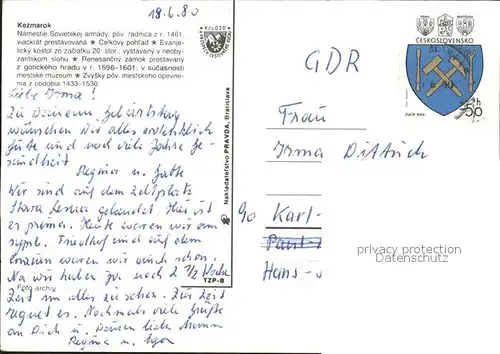 18.6.80
Kežmarok
Námestie Sovietskej armády, pôv. radnica z r. 1461,
viackrát prestavovaná ★ Celkový pohľad ★ Evanje-
lický kostol zo začiatku 20. stor., vystavaný v neobyz-
antskom slohu ★ Renesančný zámok prestavaný
z gotického hradu v r. 1596–1601; v súčasnosti
mestské múzeum ★ Zvyšky pôv. mestského opevne-
nia z obdobia 1433–1530
Liebe Irma!
Zu Deinem Geburtstag
wünschen wir alles erdenklich
Gute und noch viele Jahre Ge-
sundheit
Regina u.
Wir sind auf dem Zeltplatz
Stara Lesna gelandet, hier ist
es prima. Heute waren wir am
symb. Friedhof und auf dem
waren wir auch schon.
Na wir haben ja noch 2 1/2 Woche
Zeit um alles zu sehen. Zur Zeit
regnet es. Nochmals viele Grüße
an Dich u. Deinen lieben
Regina u.
Foto archív
Nakladateľstvo PRAVDA, Bratislava
TZP-B
ČESKOSLOVENSKO
50 h
GDR
Frau
Irma Dittrich
c/o Karl-
Hans-
privacy protection
VEREINDATA